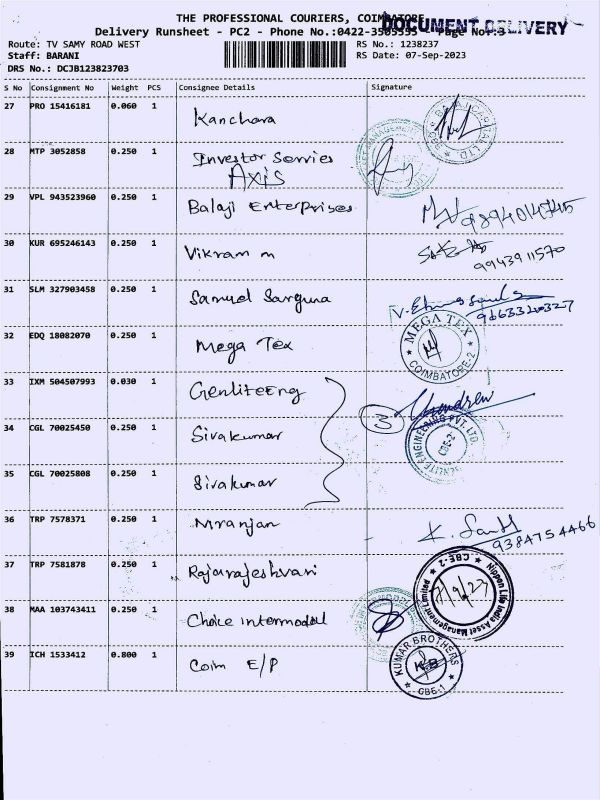 THE PROFESSIONAL COURIERS, COIMBATORE
DOCUMENT DELIVERY
Delivery Runsheet - PC2 - Phone No.:0422-3505555 Page No.:3
Route: TV SAMY ROAD WEST
RS No.: 1238237
Staff: BARANI
RS Date: 07-Sep-2023
DRS No.: DCJB123823703
S No Consignment No Weight PCS Consignee Details Signature
27 PRO 15416181 0.060 1 Kanchara
28 MTP 3052858 0.250 1 Investor Servies
AXIS
29 VPL 943523960 0.250 1 Balaji Enterprises
9894014745
30 KUR 695246143 0.250 1 Vikram m
9943911570
31 SLM 327903458 0.250 1 Samuel Sarguna
32 EDQ 18082070 0.250 1 Mega Tex
MEGA TEX
COIMBATORE-2
33 IXM 504507993 0.030 1 Genliteeng
3
34 CGL 70025450 0.250 1 Sivakumar
GENLITE ENGINEERING PVT. LTD
CBE-2
35 CGL 70025808 0.250 1 Sivakumar
36 TRP 7578371 0.250 1 Mranjan
9384754466
37 TRP 7581878 0.250 1 Rajarajeshvari
Nippon Life India Asset Management Limited
CBE-2
7/9/23
38 MAA 103743411 0.250 1 Choice intermodal
39 ICH 1533412 0.800 1 Coim E/P
KUMAR BROTHERS
KB
CBE-1